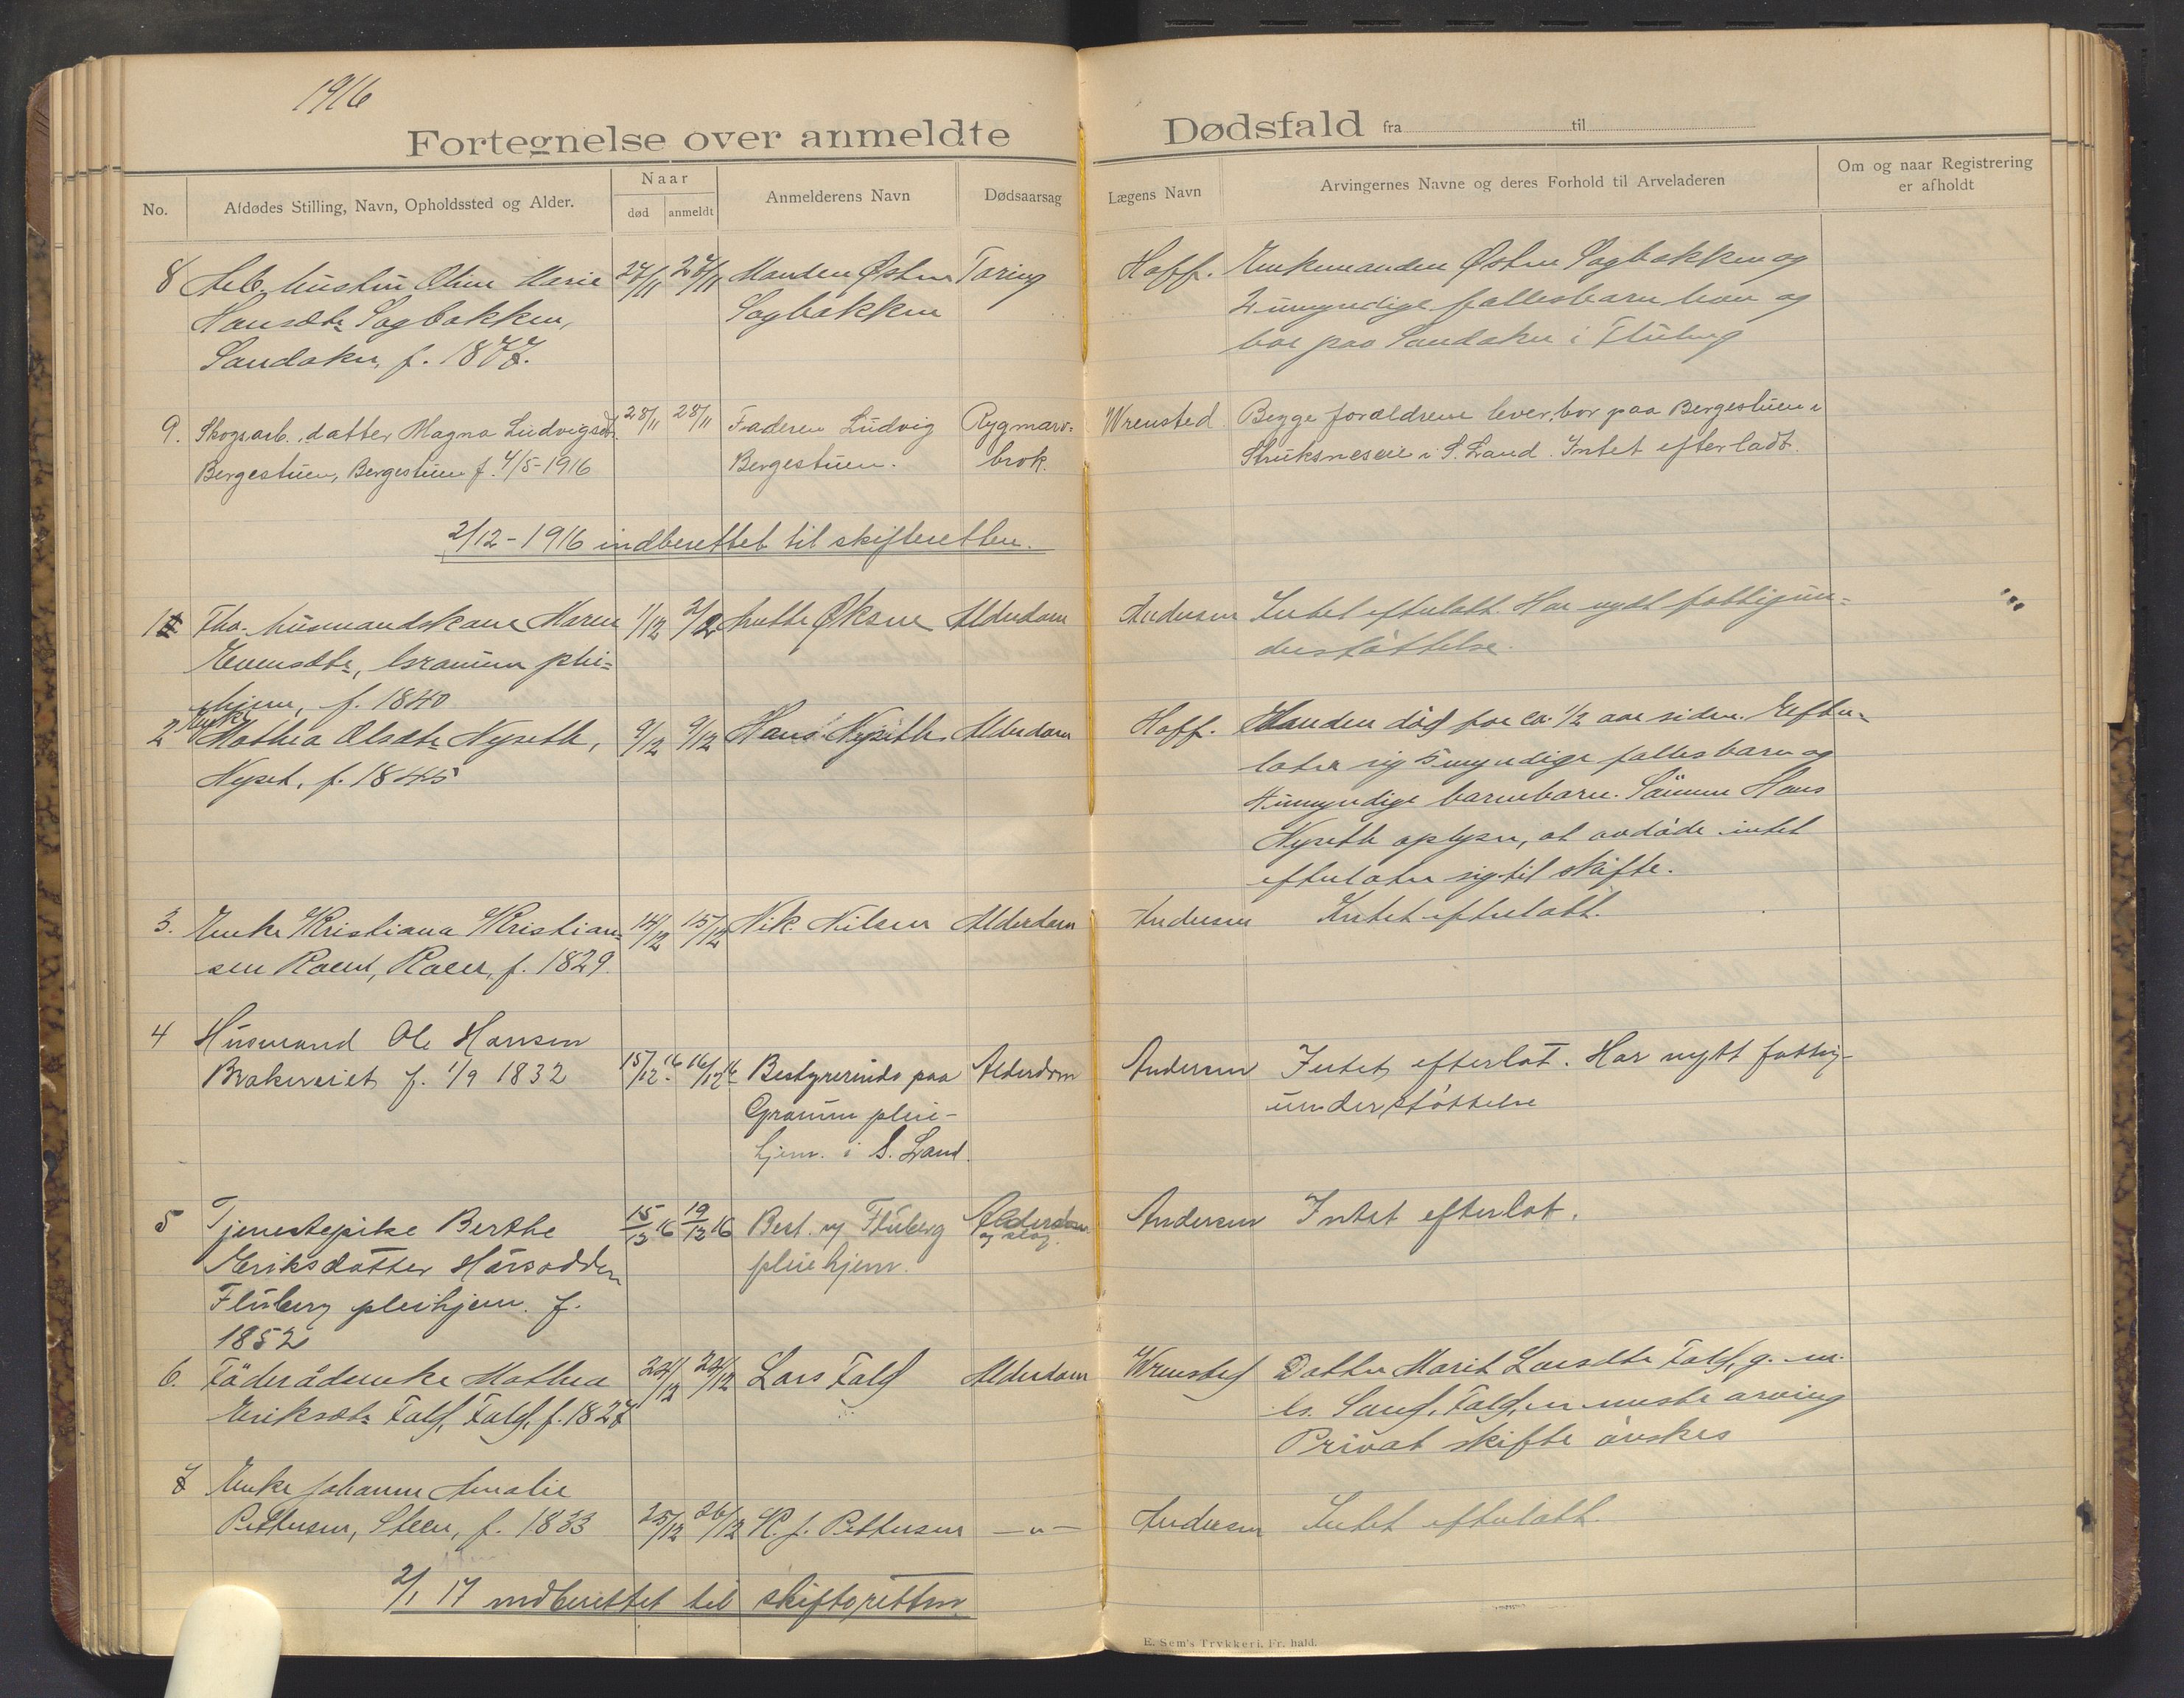 1916
Fortegnelse over anmeldte Dødsfald fra til
No.
Afdødes Stilling, Navn, Opholdssted og Alder.
Naar
død
anmeldt
Anmelderens Navn
Dødsaarsag
Lægens Navn
Arvingernes Navne og deres Forhold til Arveladeren
Om og naar Registrering
er afholdt
8 Arb. hustru Oline Marie 27/11 27/11 Manden Østen Tæring Hoff. Enkemanden Østen Sagbakken og
Hansdtr. Sagbakken, Sagbakken umyndige fællesbarn
Sandaker, f. 1877. bor paa Sandaker i Fluberg
9. Skogsarb. datter Magna Ludvigsdt. 28/11 28/11 Faderen Ludvig Rygmarv- Wrensted Begge forældrene lever, bor paa Bergestuen i
Bergestuen, Bergestuen f. 4/5-1916 Bergestuen. brok. Struksneseie i S. Land. Intet efterladt.
2/12-1916 indberettet til skifteretten.
1 Fhv. husmandskone Maren 1/12 2/12 Øksne Alderdom Andersen Intet efterlatt. Har nydt fattigun-
Evensdtr, Granum plei- derstøttelse.
ehjem, f. 1840
Enke
2 Mathea Olsdtr Nyseth, 9/12 9/12 Hans Nyseth Alderdom Hoff. Manden død for ca. 1/2 aar siden. Efter-
Nyset. f. 1845 later sig 5 myndige fællesbarn og
4 umyndige barnebarn. Sønnen Hans
Nyseth oplyser, at avdøde intet
efterlater sig til skifte.
3. Enke Kristiana Kristian- 14/12 15/12 Nik. Nilsen Alderdom Andersen Intet efterlatt.
sen Roen, Roen, f. 1829.
4 Husmand Ole Hansen
Brakereiet f. 1/9 1832 15/12.16 16/12 16 Bestyrerinde paa Alderdom Andersen Intet efterlat. Har nytt fattig-
Granum pleie- understøttelse
hjem. i S. Land.
5 Tjenestepike Berthe 15/12 16 19/12 16 Best. av Fluberg Alderdom Andersen Intet efterlat.
og slag.
Eriksdatter Harsodden pleiehjem.
Fluberg pleihjem. f.
1852
6. Føderådsenke Mathea 24/12 29/12 Lars Fald Alderdom Wrensted Datter Marit Larsdtr Fald, g. m.
Eriksdtr Fald, Fald, f. 1827 Fald, er eneste arving
Privat skifte ønskes
7 Enke Johanne Amalie
Pettersen, Steen, f. 1833 25/12 26/12 K. J. Pettersen —"— Andersen Intet efterlatt.
2/1 17 indberettet til skifteretten
E. Sem's Trykkeri, Fr. hald.